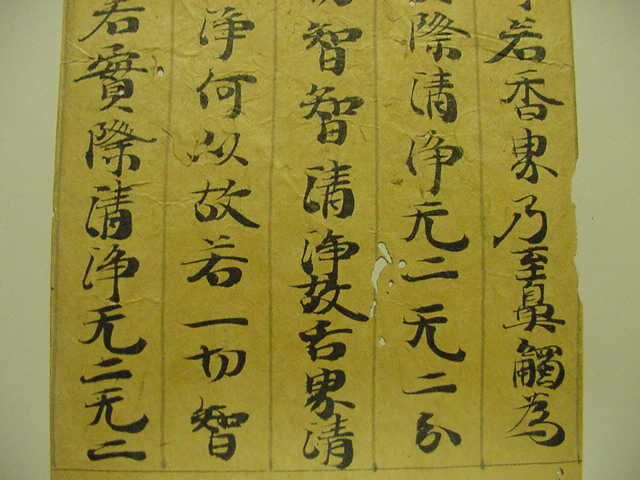 若香界乃至鼻觸為
際清淨无二无二分
智智清淨故舌界清
淨何以故若一切智
若實際清淨无二无二